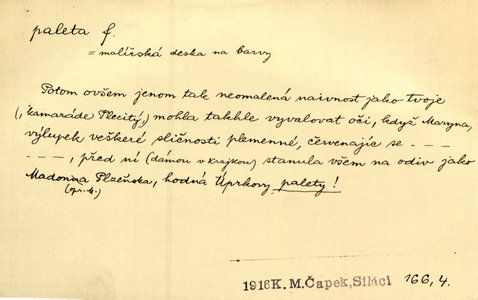 paleta f.
= malířská deska na barvy
Potom ovšem jenom tak neomalená naivnost jako tvoje
(, kamaráde Plecitý,) mohla takhle vyvalovat oči, když Maryna,
výlupek veškeré sličnosti plemenné, červenajíc se - - -
- - -, před ní (dámou v krajkou) stanula všem na odiv jako
Madonna Plzeňska, hodná Úprkovy palety!
1916 K. M. Čapek, Siláci 166, 4.